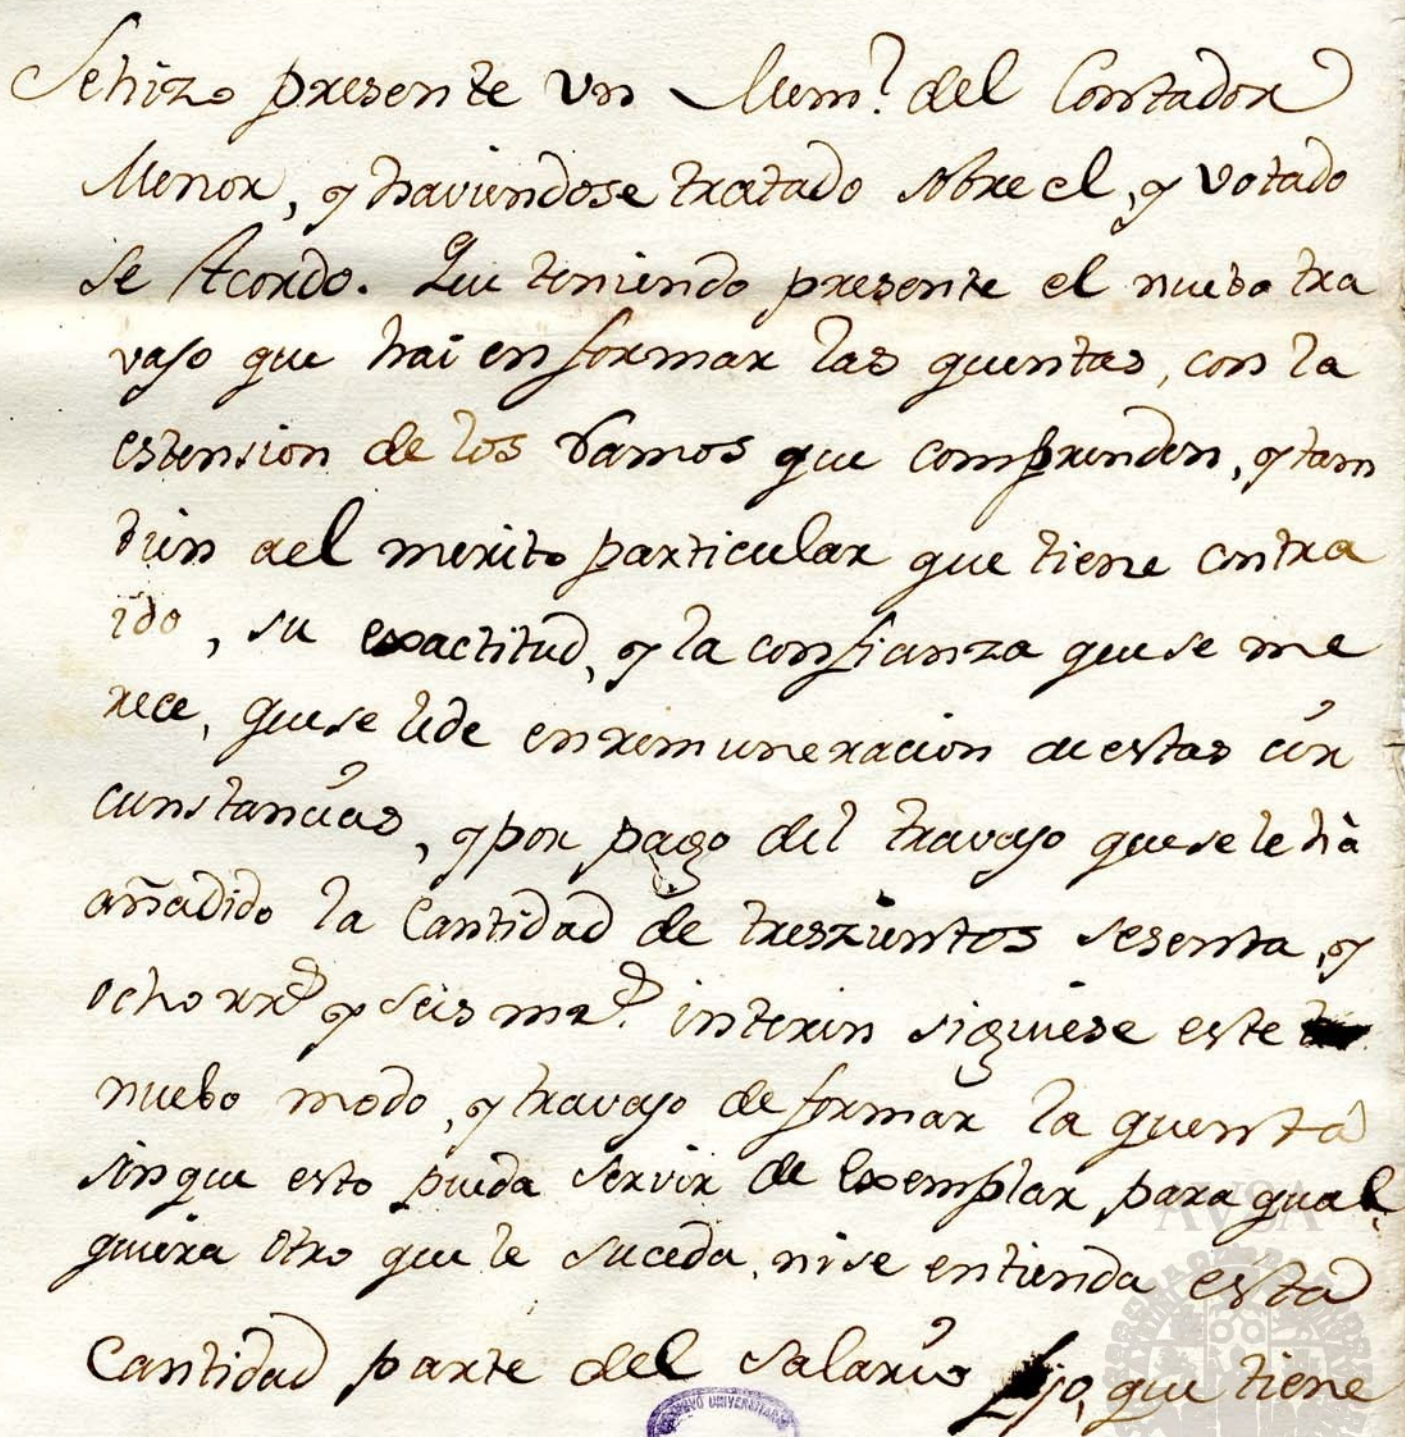 Sehizo presente vn Mem.l del Contador
Menor, y haviendose tratado sobre el, y votado
se Acordo. Que teniendo presente el nuebo tra
vajo que hai en formar las quentas, con la
estension de los Ramos que comprenden, y tam
bien del merito particular que tiene contra
ido, su exactitud, y la confianza quese me
rece, quese lede en remuneracion de estas cir
cunstancias, y por pago del travajo quese le hà
añadido la Cantidad de treszientos sesenta, y
ocho rr.s y seis mr.s interin siguiese este
nuebo modo, y travajo de formar la quenta
sin que esto pueda servir de Exemplar para qual
quiera otro que le suceda, ni se entienda esta
Cantidad parte del salario fijo, que tiene
AVSA
ARCHIVO UNIVERSITARIO